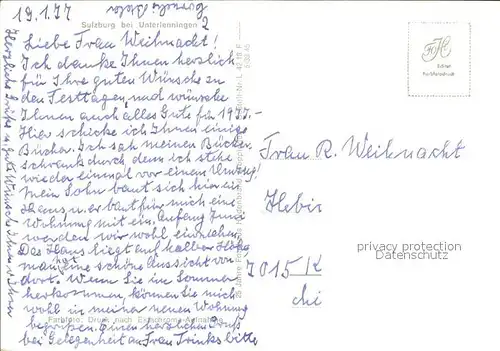 19.1.77
Sulzburg bei Unterlenningen
Liebe Frau Weihnacht!
Ich danke Ihnen herzlich
für Ihre guten Wünsche zu
den Festtagen, und wünsche
Ihnen auch alles Gute für 1977.-
Hier schicke ich Ihnen einige
Bücher. Ich sah meinen Bücher
schrank durch denn ich stehe
wieder einmal vor einem Umzug!
Mein Sohn baut sich hier ein
Haus u. er baut für mich eine
Wohnung mit ein. Anfang Juni
werden wir wohl einziehen.
Das Haus liegt auf halber Höhe
man hat eine schöne Aussicht von
dort. Wenn Sie im Sommer
herkommen, können Sie mich
wohl in meiner neuen Wohnung
begrüßen. Einen herzlichen Gruß
Farbfoto: Druck nach Ektachrome-Aufnahme
bei Gelegenheit an Frau Trinks bitte
Herzliche Grüße u. gute Wünsche Ihnen v. Ihrer
Frau R. Weihnacht
7015
privacy protection
Datenschutz